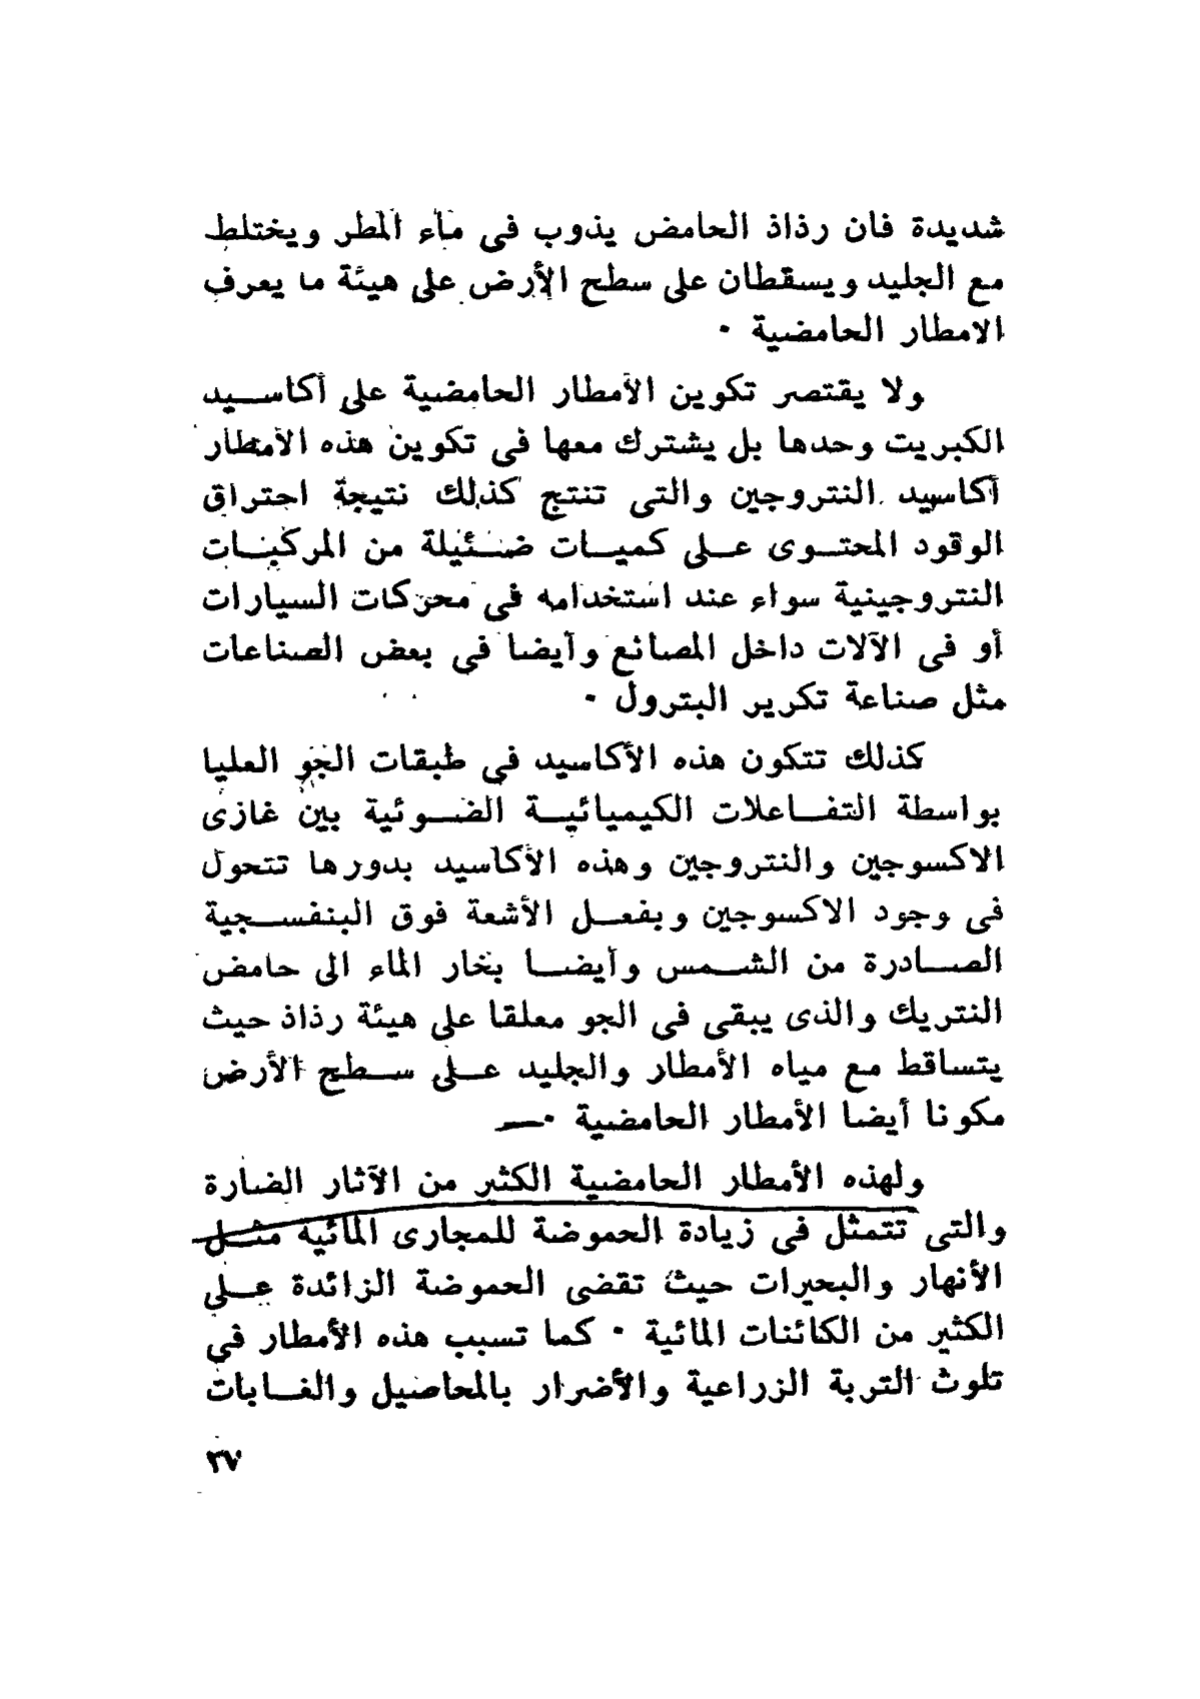 شديدة فان رذاذ الحامض يذوب فى ماء المطر ويختلط
مع الجليد ويسقطان على سطح الأرض على هيئة ما يعرف
الامطار الحامضية ٠
ولا يقتصر تكوين الأمطار الحامضية على أكاسيد
الكبريت وحدها بل يشترك معها فى تكوين هذه الأمطار
أكاسيد النتروجين والتى تنتج كذلك نتيجة احتراق
الوقود المحتوى على كميات ضئيلة من المركبات
النتروجينية سواء عند استخدامه فى محركات السيارات
أو فى الآلات داخل المصانع وأيضا فى بعض الصناعات
مثل صناعة تكرير البترول ٠
كذلك تتكون هذه الأكاسيد فى طبقات الجو العليا
بواسطة التفاعلات الكيميائية الضوئية بين غازى
الاكسوجين والنتروجين وهذه الأكاسيد بدورها تتحول
فى وجود الاكسوجين وبفعل الأشعة فوق البنفسجية
الصادرة من الشمس وأيضا بخار الماء الى حامض
النتريك والذى يبقى فى الجو معلقا على هيئة رذاذ حيث
يتساقط مع مياه الأمطار والجليد على سطح الأرض
مكونا أيضا الأمطار الحامضية ٠
ولهذه الأمطار الحامضية الكثير من الآثار الضارة
والتى تتمثل فى زيادة الحموضة للمجارى المائية مثل
الأنهار والبحيرات حيث تقضى الحموضة الزائدة على
الكثير من الكائنات المائية ٠ كما تسبب هذه الأمطار فى
تلوث التربة الزراعية والأضرار بالمحاصيل والغابات
٣٧